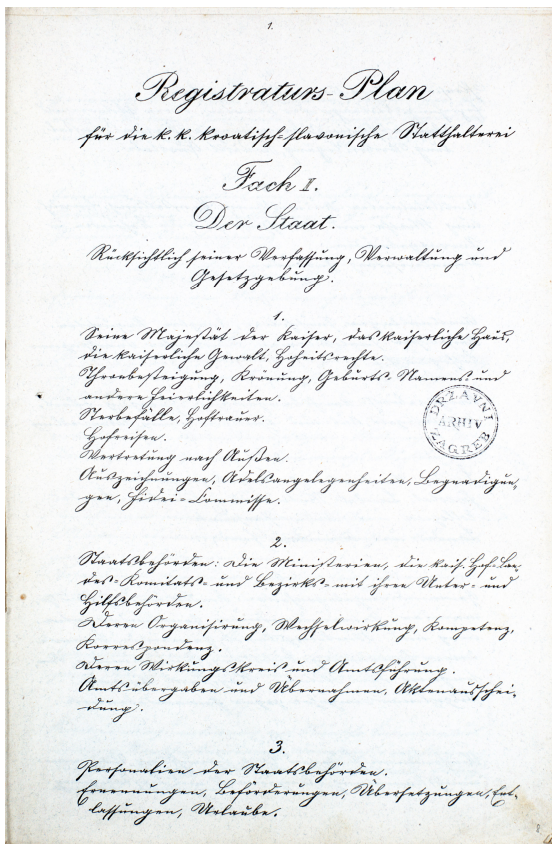 1.
Registraturs-Plan
für die k. k. kroatisch-slavonische Statthalterei
Fach II.
Der Staat.
Rücksichtlich seiner Verfassung, Verwaltung und
Gesetzgebung.
1.
Seine Majestät der Kaiser, das kaiserliche Haus,
die kaiserliche Gewalt, Hoheitsrechte.
Thronbesteigung, Krönung, Geburts- Namens- und
andere Feierlichkeiten.
Sterbefälle, Hoftrauer.
Hofreisen.
Vertretung nach Außen.
Auszeichnungen, Adelsangelegenheiten, Begnadigun-
gen, Fidei-Commisse.
DRŽAVNI
ARHIV
ZAGREB
2.
Staatsbehörden: Die Ministerien, die kais. Hof- Lan-
des- Komitats- und Bezirks- mit ihren Unter- und
Hilfsbehörden.
Deren Organisirung, Wechselwirkung, Kompetenz,
Korrespondenz.
Deren Wirkungskreis und Amtsführung.
Amtsübergaben und Übernahmen, Aktenausschei-
dung.
3.
Personalien der Staatsbehörden.
Ernennungen, Beförderungen, Übersetzungen, Ent-
lassungen, Urlaube.